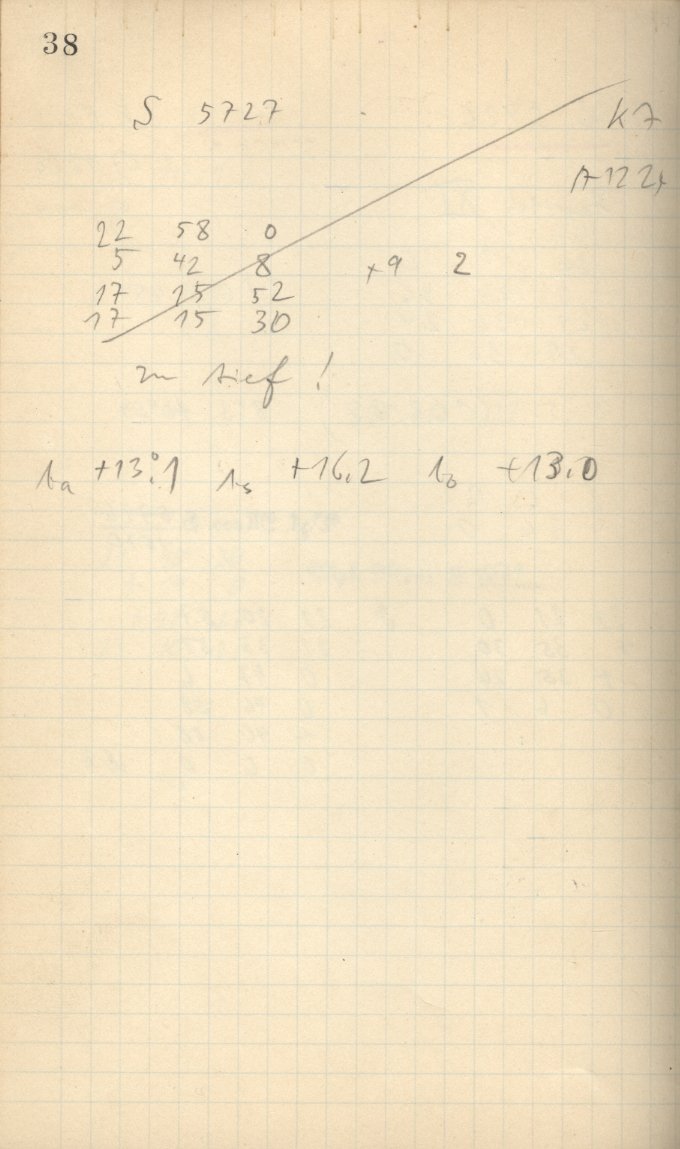 38
S 5727 K7
A 122
22 58 0
5 42 8 +9 2
17 15 52
17 15 30
zu tief !
ta +13.°1 ts +16.2 to +13.0